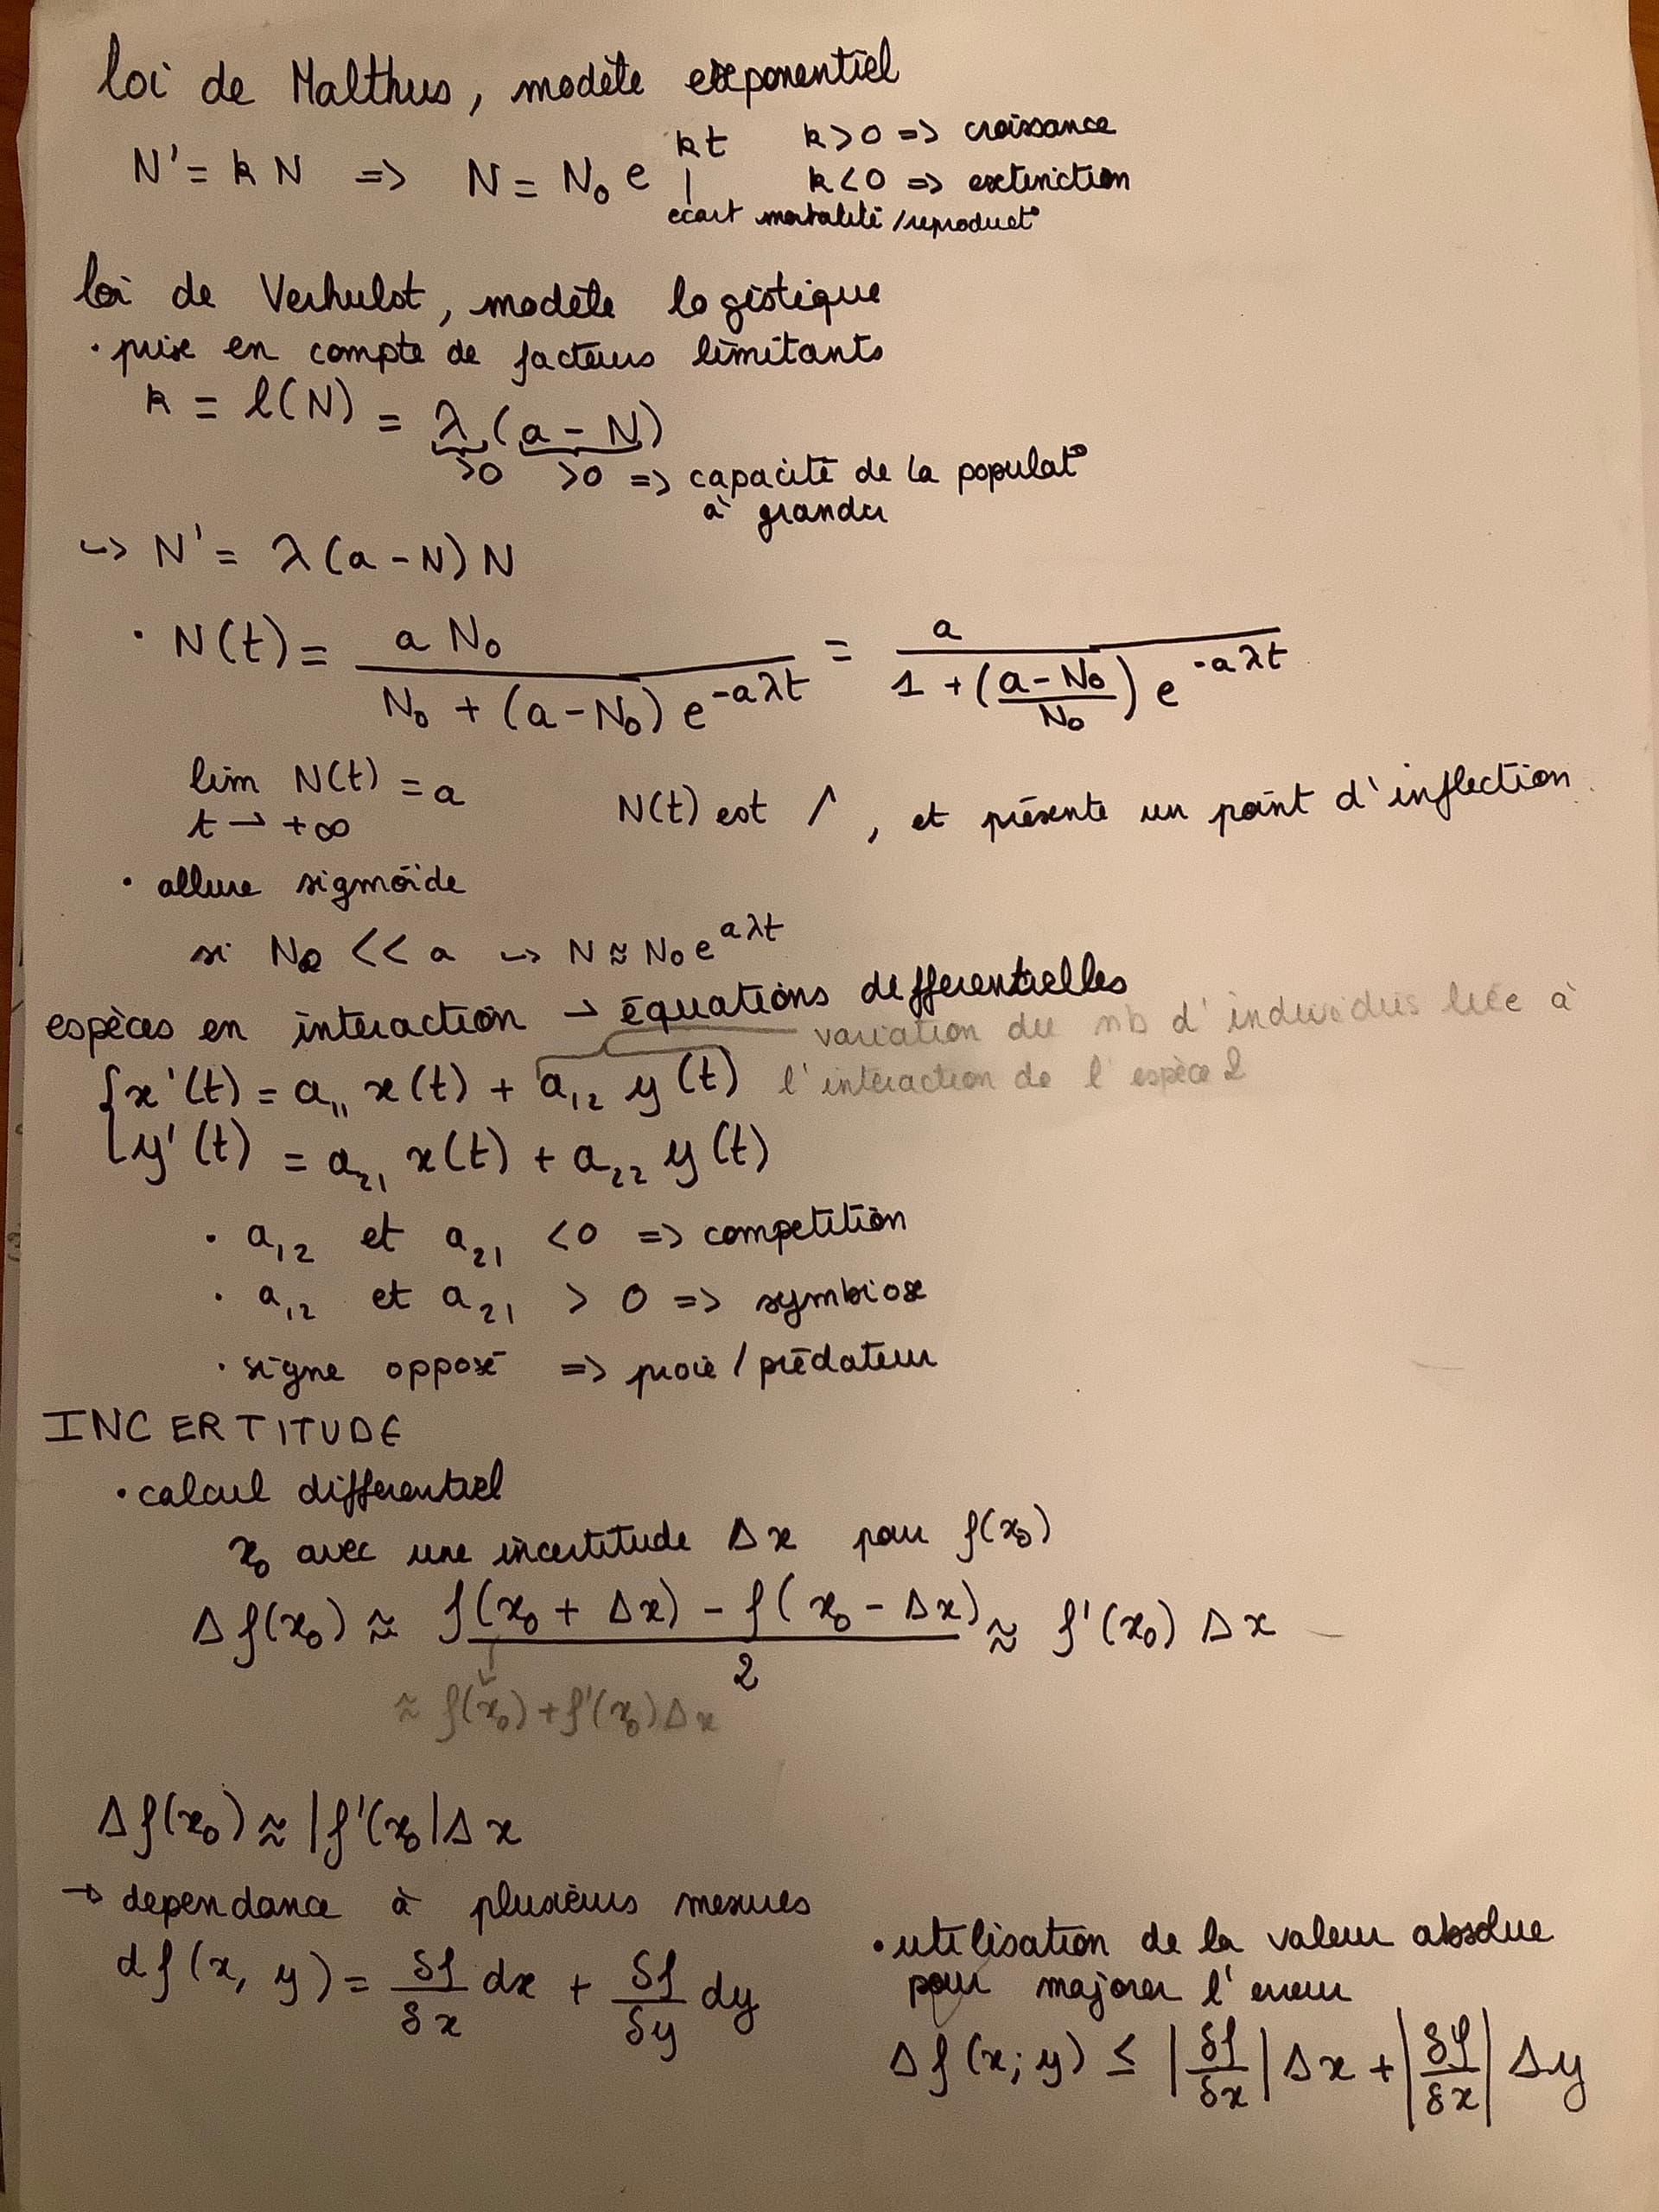 loi de Malthus, modèle exponentiel
N' = k N => N = N₀ e^{kt} k > 0 => croissance
k < 0 => extinction
ecart mortalité / reproduct°
loi de Verhulst, modèle logistique
• prise en compte de facteurs limitants
k = l(N) = λ (a - N)
>0 >0 => capacité de la populat°
à grandir
↪ N' = λ (a - N) N
• N(t) = a N₀ / (N₀ + (a - N₀) e^{-aλt}) = a / (1 + ((a - N₀)/N₀) e^{-aλt})
lim N(t) = a
t → +∞
N(t) est ↗, et présente un point d'inflection.
• allure sigmoïde
si N₀ << a ↪ N ≈ N₀ e^{aλt}
espèces en interaction → équations differentielles
variation du nb d'individus liée à
{ x'(t) = a₁₁ x(t) + a₁₂ y(t) l'intéraction de l'espèce 2
y'(t) = a₂₁ x(t) + a₂₂ y(t)
• a₁₂ et a₂₁ < 0 => competition
• a₁₂ et a₂₁ > 0 => symbiose
• signe opposé => proie / prédateur
INCERTITUDE
• calcul differentiel
x₀ avec une incertitude Δx pour f(x₀)
Δf(x₀) ≈ (f(x₀ + Δx) - f(x₀ - Δx)) / 2 ≈ f'(x₀) Δx
≈ f(x₀) + f'(x₀) Δx
Δf(x₀) ≈ |f'(x₀|Δx
→ dependance à plusieurs mesures
df(x, y) = δf/δx dx + δf/δy dy
• utilisation de la valeur absolue
pour majorer l'erreur
Δf(x; y) ≤ |δf/δx| Δx + |δf/δx| Δy